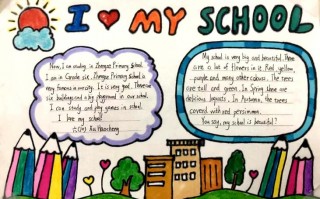 I ❤ MY SCHOOL
Now, I am studying in Primary School.
I am in Grade six. Primary School is
very famous in our city. It is very good. There are
six buildings and a big playground in our school.
I can study and play games in school.
I like my school!
My school is very big and beautiful. There
are a lot of flowers in it. Red, yellow,
purple and many other colours. The trees
are tall and green. In Spring there are
delicious loquats. In Autumn, the trees
covered with red persimmon.
You say, my school is beautiful?